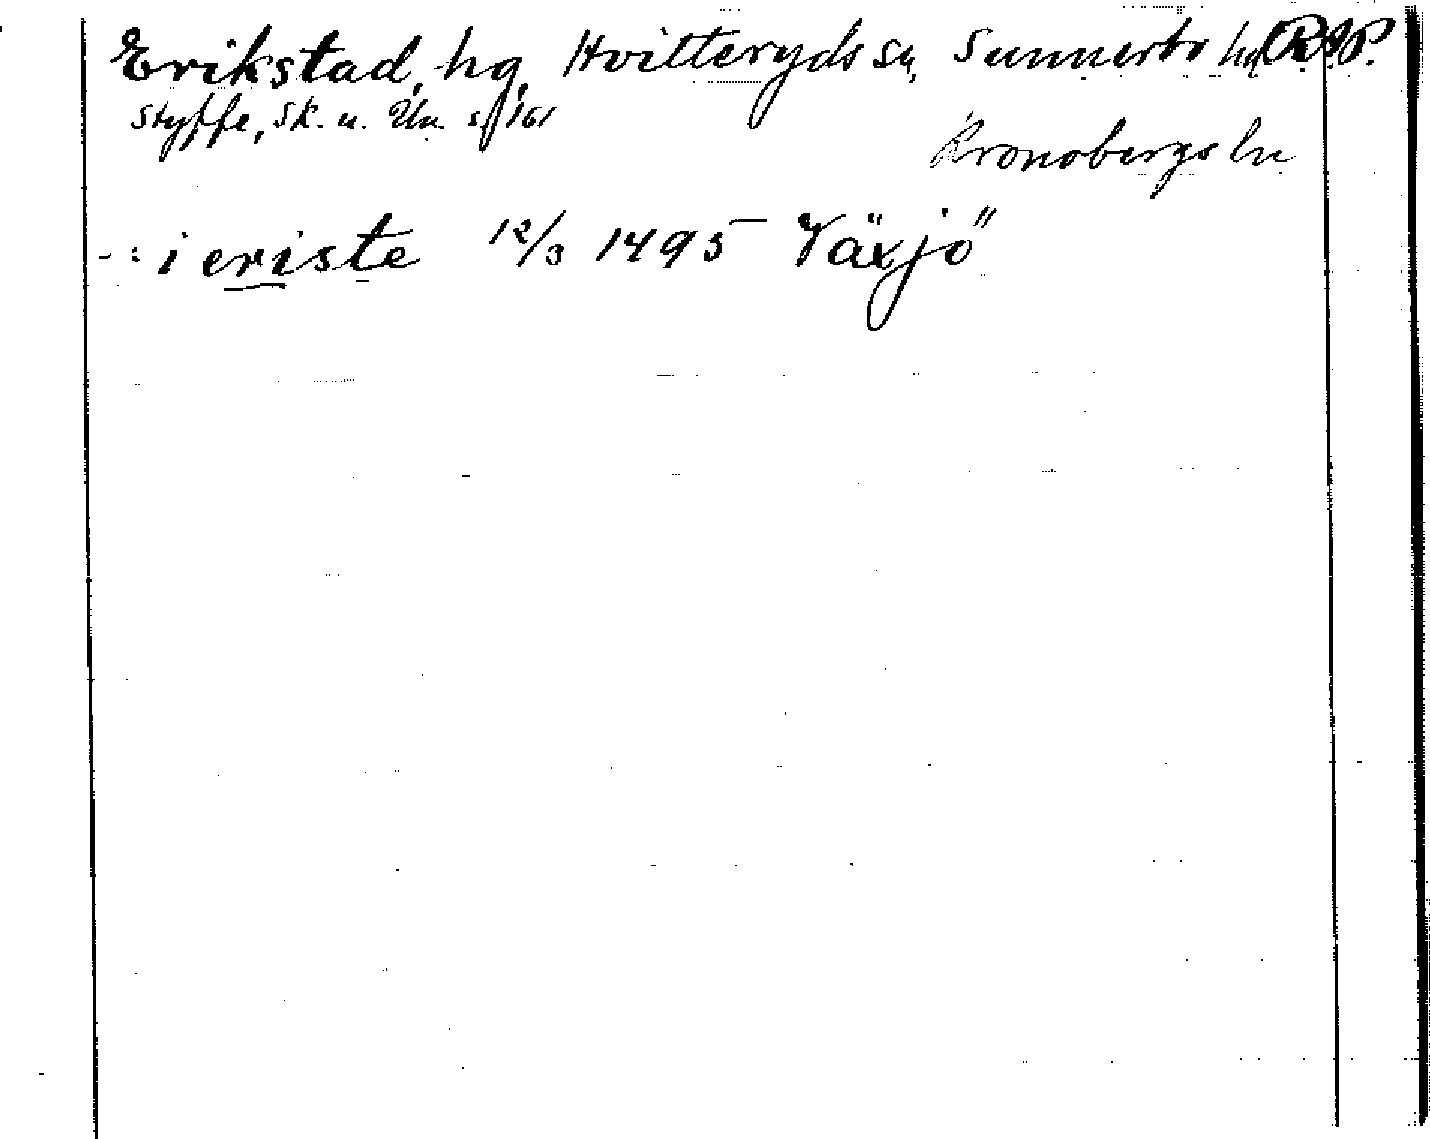 Erikstad, hg, Hvitteryds sn, Sunnerbo hd R.P.
Styffe, Sk. u. Un. s. 161
Kronobergs ln
-: i eriste 12/3 1495 Växjö